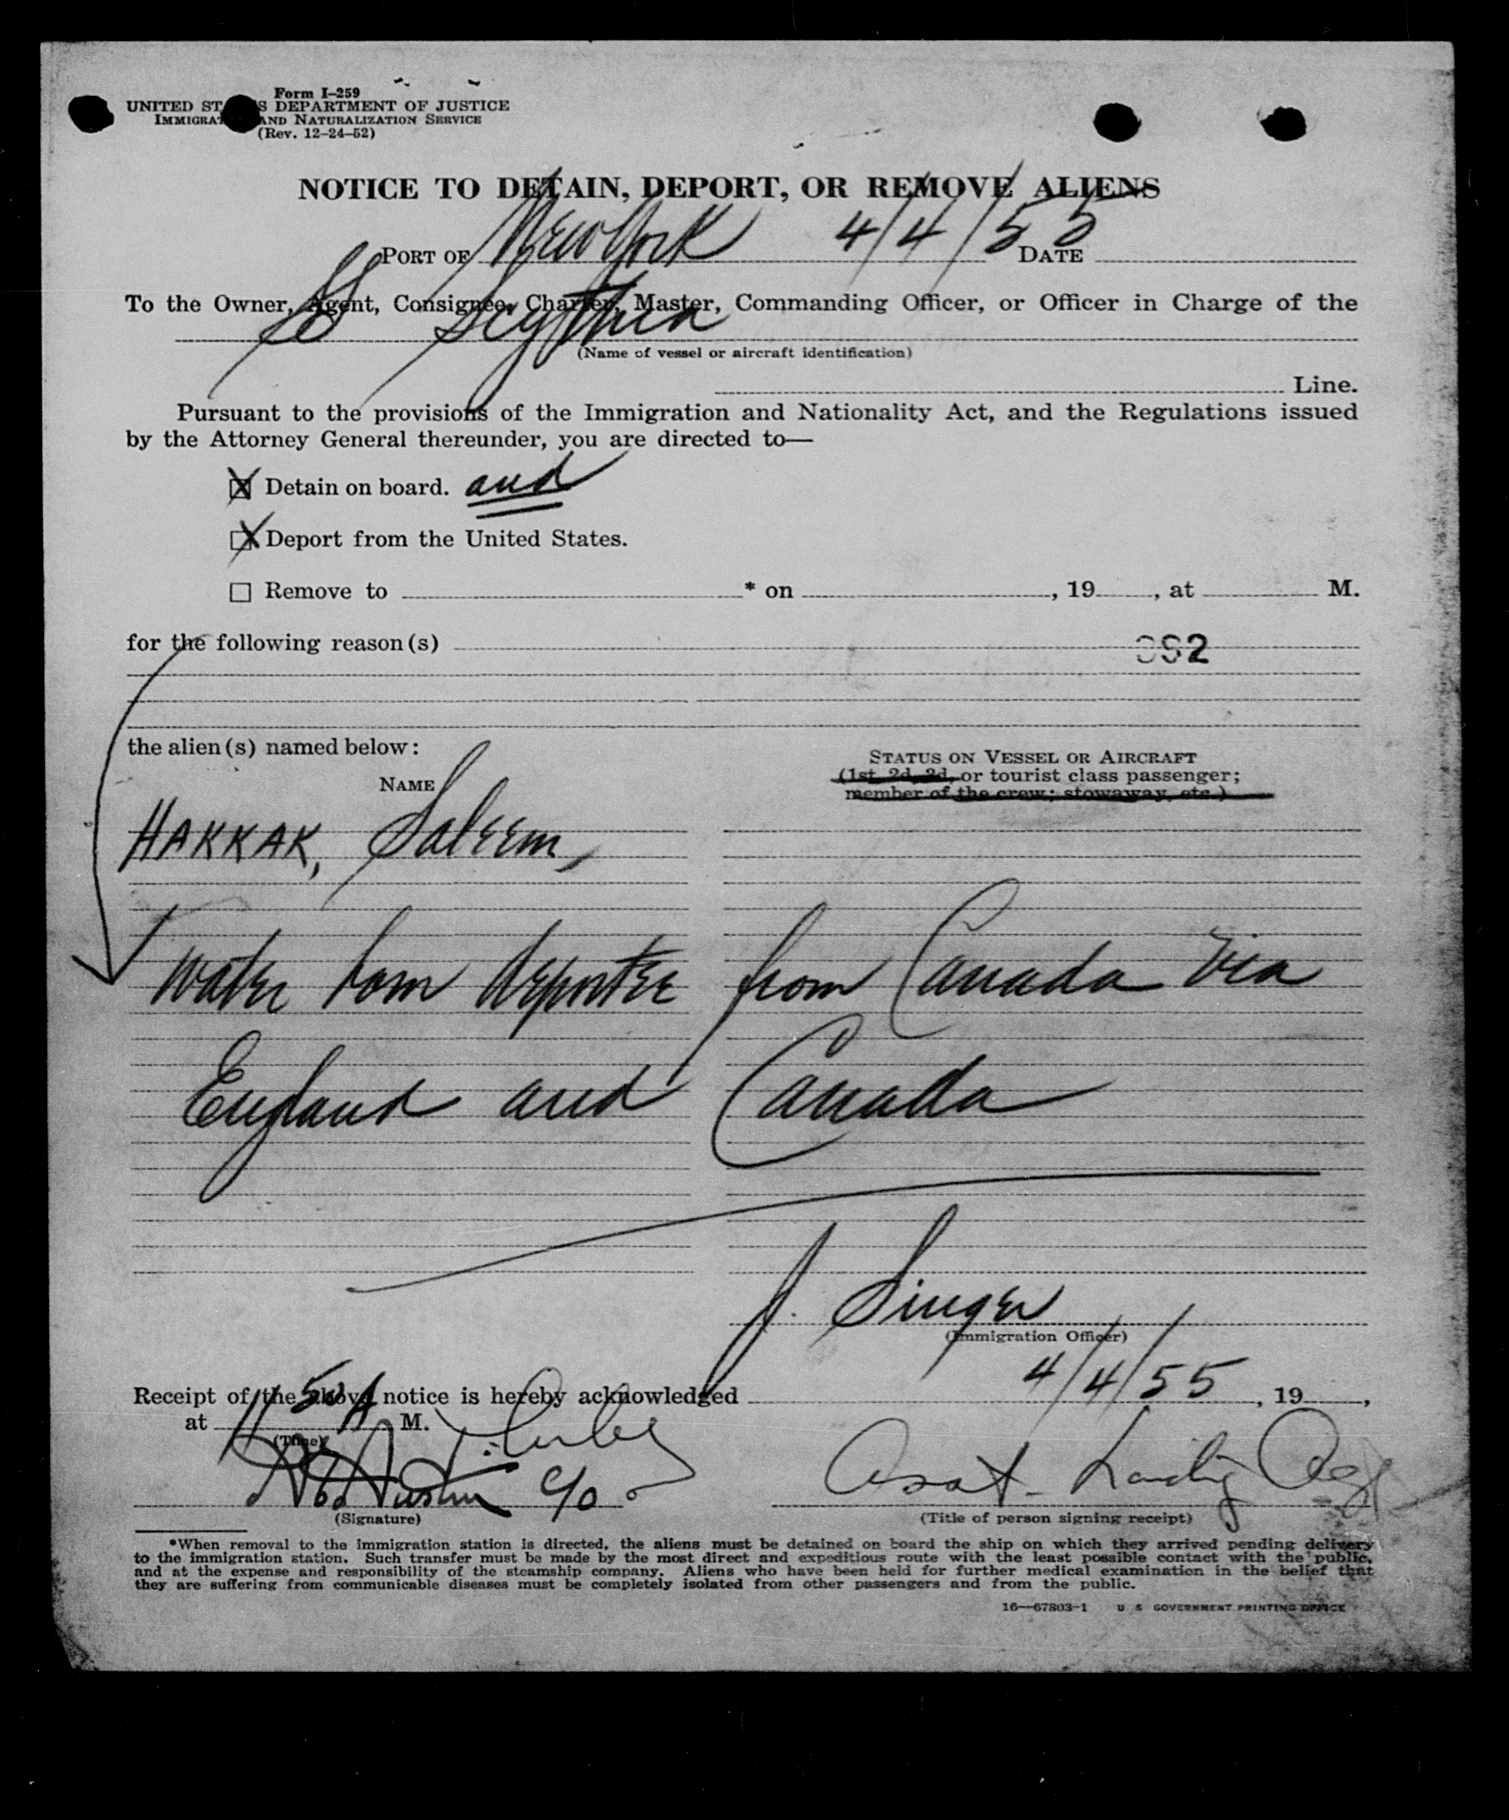 Form I-259
UNITED STATES DEPARTMENT OF JUSTICE
IMMIGRATION AND NATURALIZATION SERVICE
(Rev. 12-24-52)
NOTICE TO DETAIN, DEPORT, OR REMOVE ALIENS
PORT OF New York 4/4/55 DATE
To the Owner, Agent, Consignee, Charter, Master, Commanding Officer, or Officer in Charge of the
SS Scythia
(Name of vessel or aircraft identification)
Line.
Pursuant to the provisions of the Immigration and Nationality Act, and the Regulations issued
by the Attorney General thereunder, you are directed to—
☒ Detain on board. and
☒ Deport from the United States.
☐ Remove to * on , 19 , at M.
for the following reason(s) 992
the alien(s) named below:
STATUS ON VESSEL OR AIRCRAFT
NAME
(1st, 2d, 3d, or tourist class passenger;
member of the crew; stowaway, etc.)
HAKKAK, Saleem,
Water born deportee from Canada via
England and Canada
J. Singer
(Immigration Officer)
Receipt of the above notice is hereby acknowledged 4/4/55, 19 ,
at 11 50 A M.
(Time)
Austin c/o Asst. Landing Agt
(Signature) (Title of person signing receipt)
*When removal to the immigration station is directed, the aliens must be detained on board the ship on which they arrived pending delivery
to the immigration station. Such transfer must be made by the most direct and expeditious route with the least possible contact with the public,
and at the expense and responsibility of the steamship company. Aliens who have been held for further medical examination in the belief that
they are suffering from communicable diseases must be completely isolated from other passengers and from the public.
16—67803-1 U S GOVERNMENT PRINTING OFFICE